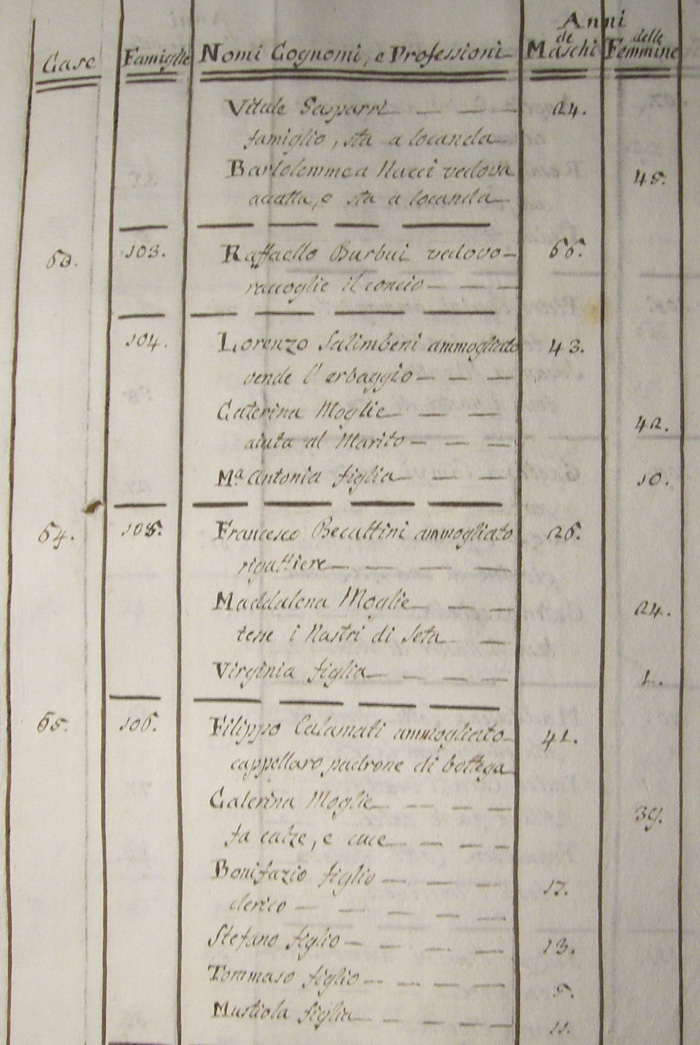 Anni
Case Famiglie Nomi Cognomi, e Professioni de Maschi delle Femmine
Vitale Gasparri 24.
famiglio, sta a locanda
Bartolommea Nucci vedova 45.
accatta, e sta a locanda
53. 103. Raffaello Burbui vedovo 66.
raccoglie il concio
104. Lorenzo Salimbeni ammogliato 43.
vende l'erbaggio
Caterina Moglie 42.
aiuta al Marito
Mª Antonia figlia 10.
54. 105. Francesco Becattini ammogliato 26.
rigattiere
Maddalena Moglie 24.
tesse i Nastri di Seta
Virginia figlia 1.
55. 106. Filippo Calamati ammogliato 41.
cappellaro padrone di bottega
Caterina Moglie 39.
fa calze, e cuce
Bonifazio figlio 17.
clerico
Stefano figlio 13.
Tommaso figlio 5.
Mustiola figlia 11.